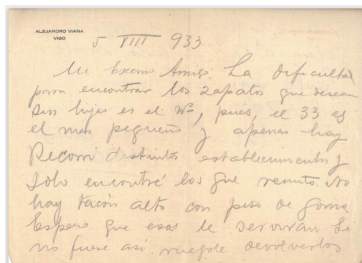 ALEJANDRO VIANA
VIGO
5 VIII 933
Mi Amigo. La dificultad
para encontrar los zapatos que desean
sus hijas es el Nº, pues, el 33 es
el mas pequeño y apenas hay
Recorrí distintos establecimientos y
solo encontré los que remito. No
hay tacón alto con piso de goma
Espero que esos le serviran. Si
no fuese así, ruégole devolverlos